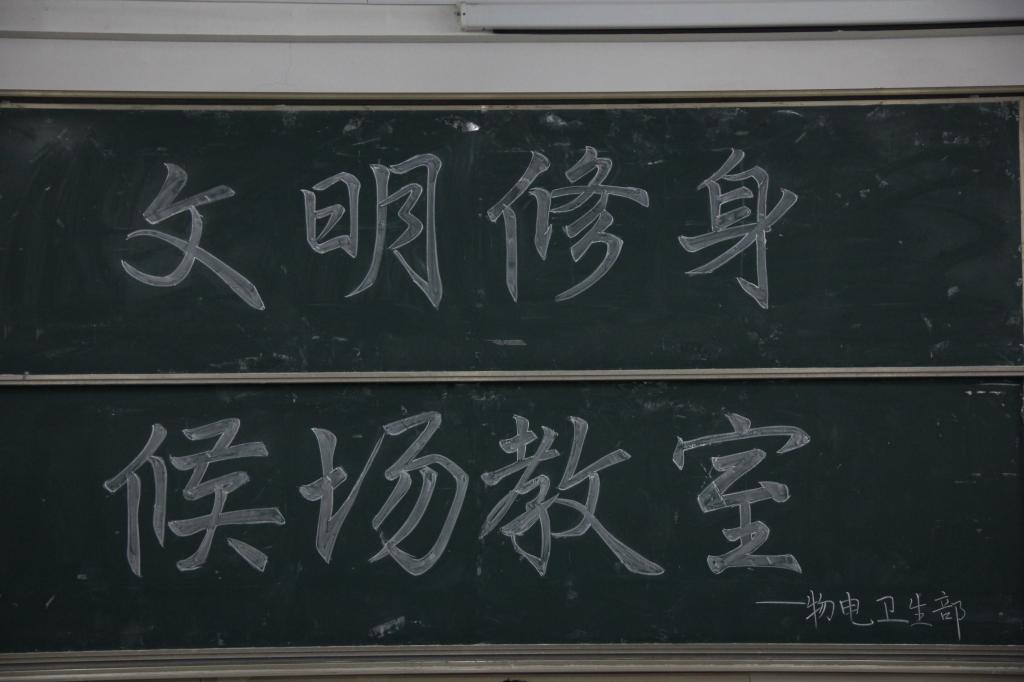 文明修身
候场教室
——物电卫生部